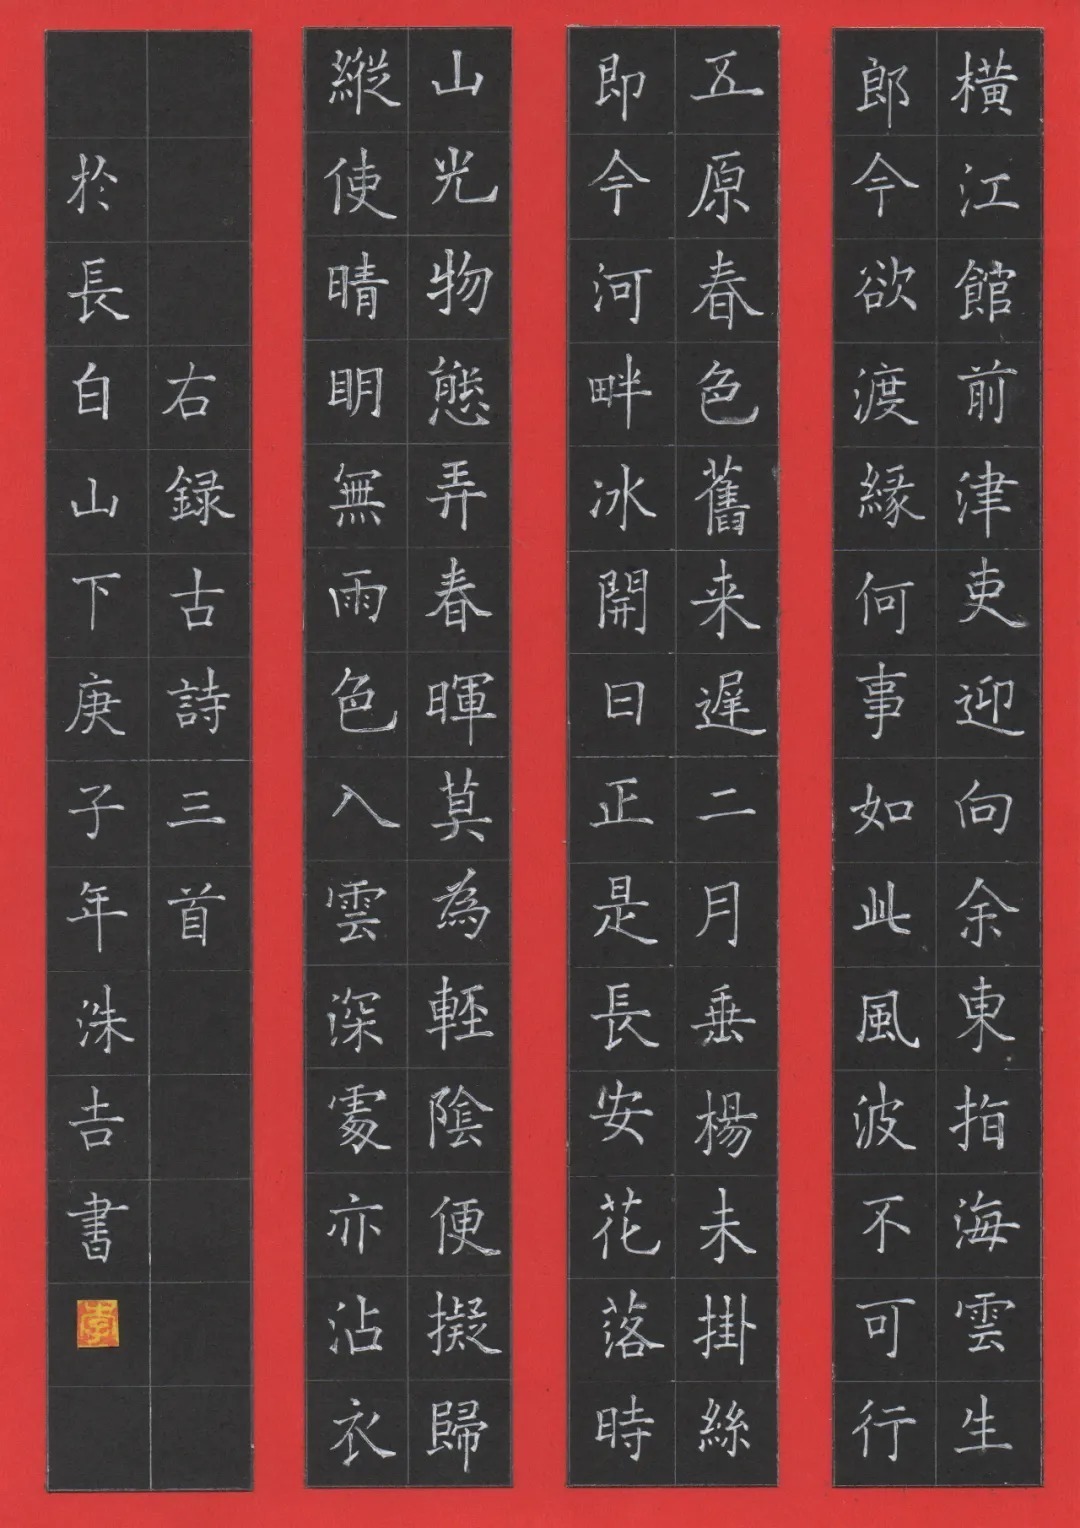 橫江館前津吏迎向余東指海雲生
郎今欲渡緣何事如此風波不可行
五原春色舊来遲二月垂楊未掛絲
即今河畔冰開日正是長安花落時
山光物態弄春暉莫為輕陰便擬歸
縱使晴明無雨色入雲深處亦沾衣
右録古詩三首
於長白山下庚子年洙吉書
李